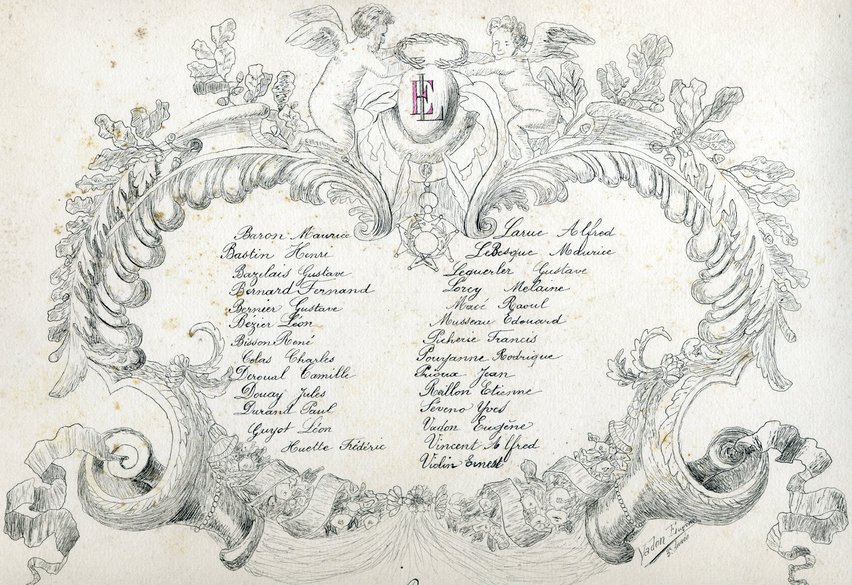 EL
Baron Maurice
Bastin Henri
Bazelais Gustave
Bernard Fernand
Bernier Gustave
Bézier Léon
Bisson René
Colas Charles
Deroual Camille
Douay Jules
Durand Paul
Guyot Léon
Huette Frédéric
Larue Alfred
LeBesque Maurice
Leguerler Gustave
Lorcy Melaine
Macé Raoul
Musseau Edouard
Picherie Francis
Pourpanne Rodrigue
Prioux Jean
Rallon Etienne
Seveno Yves
Vadon Eugène
Vincent Alfred
Violin Ernest
Vadon Eugène